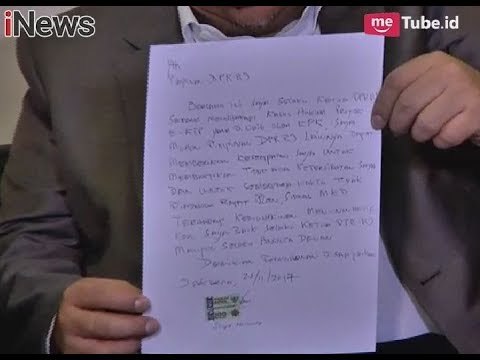 iNews
me Tube.id
Yth
Pimpinan DPR-RI
Bersama ini saya selaku Ketua DPR RI
sedang menghadapi kasus hukum proyek
E-KTP yang oleh KPK, saya
mohon Pimpinan DPR RI lainnya dapat
memberikan kesempatan saya untuk
membuktikan tidak ada keterlibatan saya
dan untuk sementara waktu tidak
diadakan rapat Pleno, sidang MKD
terhadap kemungkinan menonaktif
kan saya baik selaku Ketua DPR-RI
maupun selaku Anggota Dewan
Demikian permohonan disampaikan
Jakarta, 21/11/2017
Setya Novanto